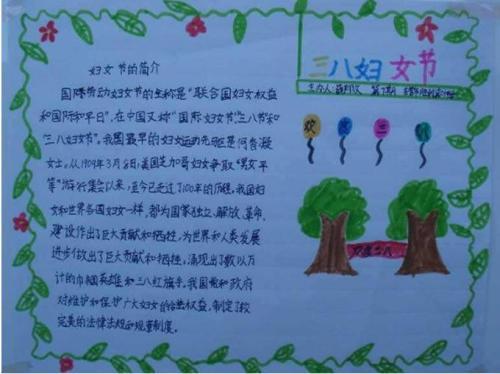 三八妇女节
主办人:
欢 庆 三 八
欢度三八
妇女节的简介
国际劳动妇女节的全称是“联合国妇女权益
和国际和平日”,在中国又称“国际妇女节”、三八节和
三八妇女节”。我国最早的妇女运动先驱是何香凝
女士。从1909年3月8日,美国芝加哥妇女争取“男女平
等”游行集会以来,至今已走过了100年的历程。我国妇
女和世界各国妇女一样,都为国家独立、解放、革命、
建设作出了巨大贡献和牺牲,为世界和人类发展
进步做出了巨大贡献和牺牲,涌现出了数以万
计的巾帼英雄和三八红旗手。我国党和政府
对维护和保护广大妇女的合法权益,制定了较
完善的法律法规和规章制度。